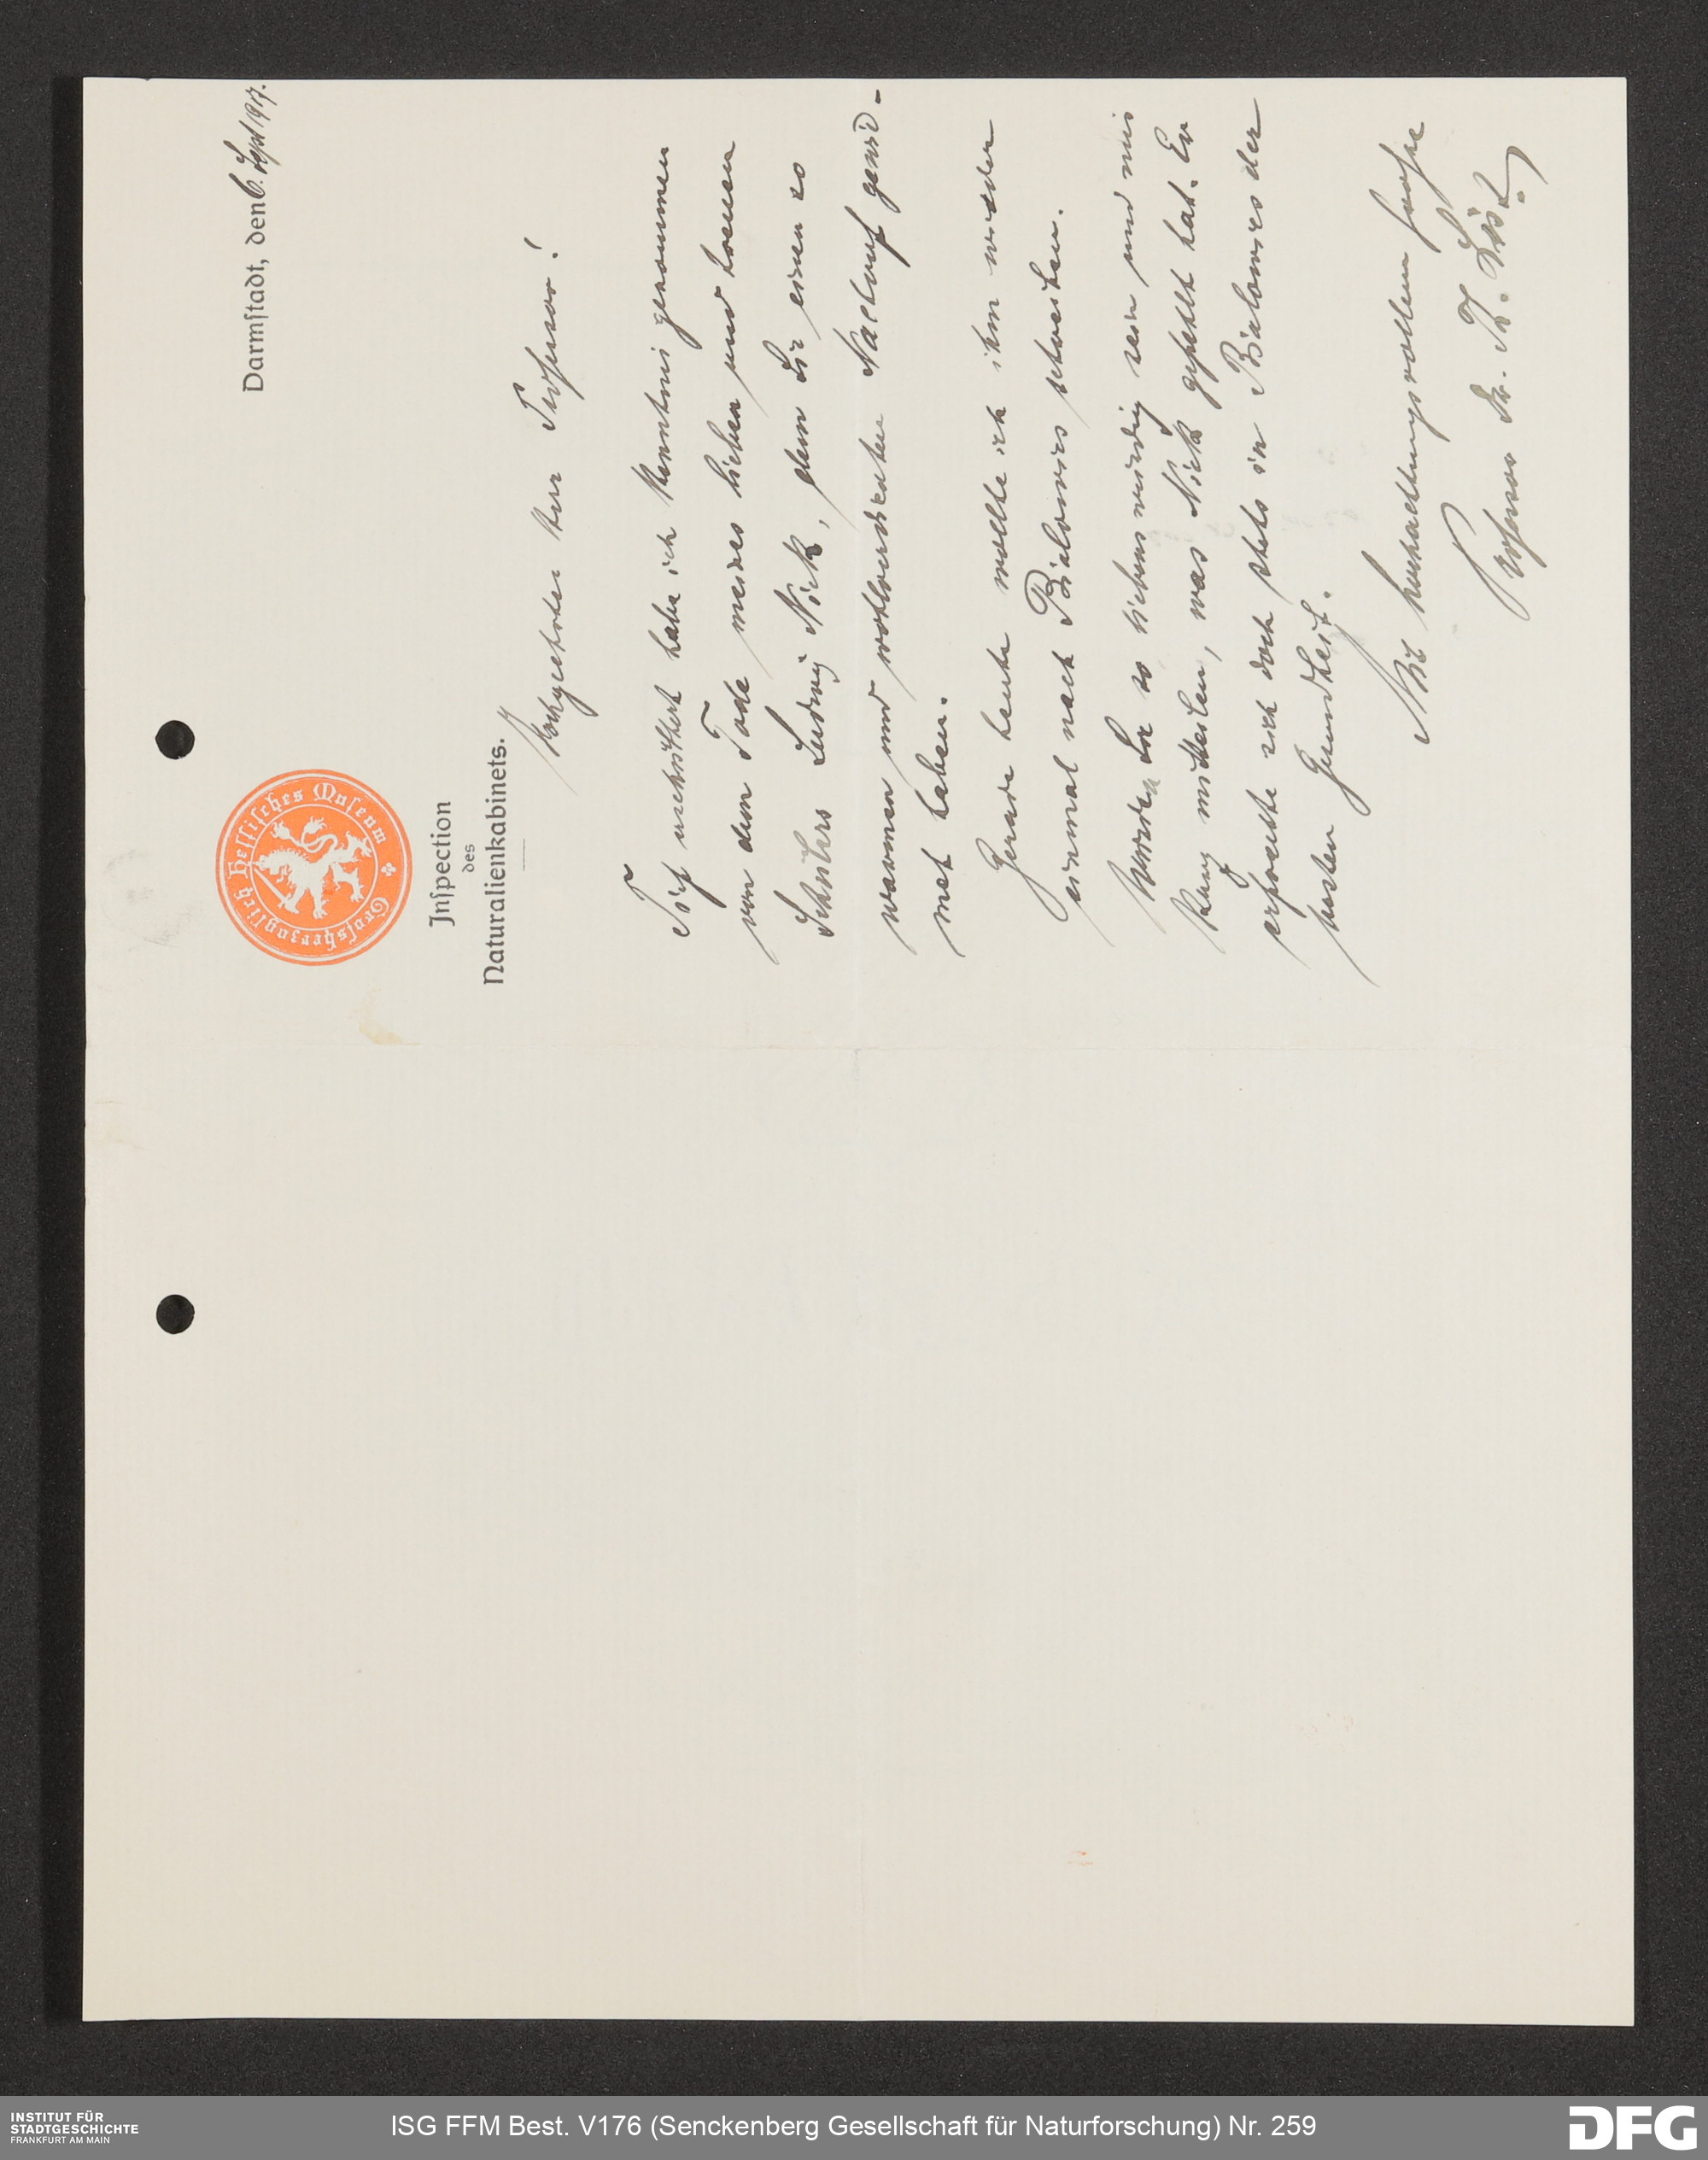 Großherzoglich Hessisches Museum
Inspection
des
Naturalienkabinets.
Darmstadt, den 6. Sept 1917.
Hochgeehrter Herr Professor!
Tief erschüttert habe ich Kenntnis genommen
von dem Tode meines lieben und treuen
Schülers Ludwig Nick, dem Sie einen so
warmen und wohlverdienten Nachruf gewid-
met haben.
Gerade heute wollte ich ihm wieder
einmal nach Bialowies schreiben.
Würden Sie so liebenswürdig sein und mir
kurz mitteilen, was Nick gefehlt hat. Er
erfreute sich doch stets in Bialowies der
besten Gesundheit.
Mit hochachtungsvollem
Professor Dr. Th. List.
INSTITUT FÜR
STADTGESCHICHTE
FRANKFURT AM MAIN
ISG FFM Best. V176 (Senckenberg Gesellschaft für Naturforschung) Nr. 259
DFG